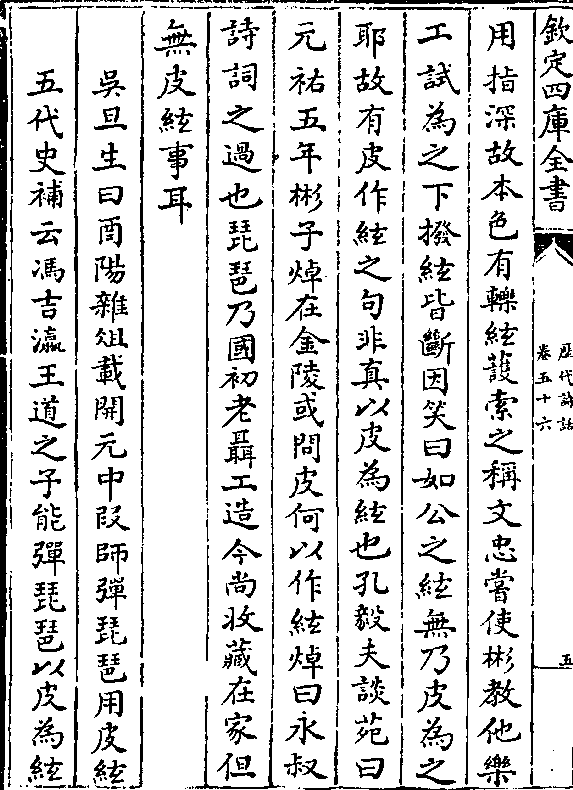 欽定四庫全書
歷代詩話
卷五十六
五
用指深故本色有轢絃䕶索之稱文忠嘗使彬教他樂
工試為之下撥絃皆斷因笑曰如公之絃無乃皮為之
耶故有皮作絃之句非真以皮為絃也孔毅夫談苑曰
元祐五年彬子焯在金陵或問皮何以作絃焯曰永叔
詩詞之過也琵琶乃國初老聶工造今尚收藏在家但
無皮絃事耳
吳旦生曰酉陽雜俎載開元中段師彈琵琶用皮絃
五代史補云馮吉瀛王道之子能彈琵琶以皮為絃